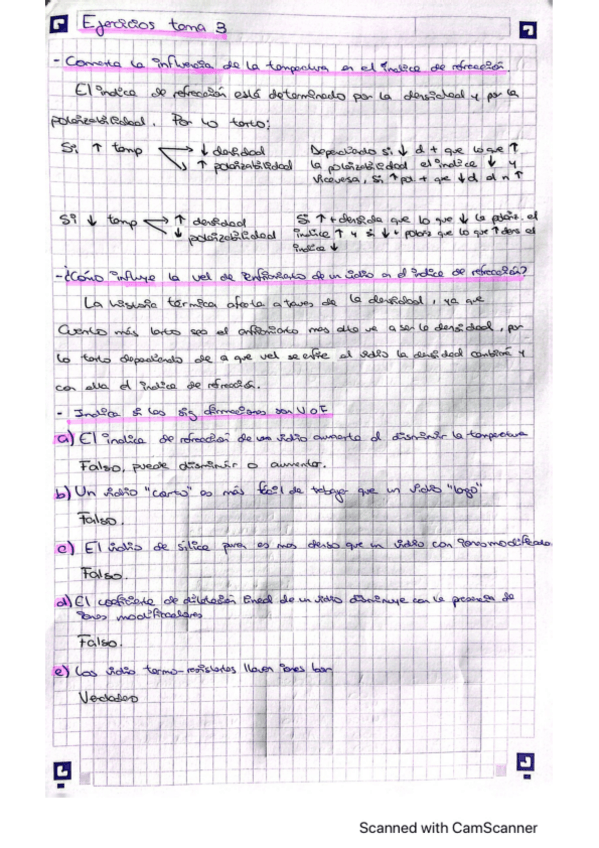 Ejercicios tema 3
- Comenta la influencia de la temperatura en el índice de refracción.
El índice de refracción está determinado por la densidad y por la
polarizabilidad. Por lo tanto;
Si ↑ temp ↓ densidad Dependiendo si ↓ d + que lo que ↑
↑ polarizabilidad la polarizabilidad el indice ↓ y
viceversa, si ↑ pol + que ↓ d el n ↑
Si ↓ temp ↑ densidad Si ↑ + densida que lo que ↓ la polariz. el
↓ polarizabilidad indice ↑ y si ↓ + polariz que lo que ↑ dens el
indice ↓
- ¿Cómo influye la vel de enfriamiento de un vidrio en el índice de refracción?
La historia térmica afecta a traves de la densidad, ya que
cuanto más lento sea el enfriamiento mas alta va a ser la densidad, por
lo tanto dependiendo de a que vel se enfrie el vidrio la densidad cambiará y
con ella el índice de refracción.
- Indica si las sig afirmaciones son V o F
a) El indice de refracción de un vidrio aumenta al disminuir la temperatura
Falso, puede disminuir o aumentar.
b) Un vidrio "corto" es más fácil de trabajar que un vidrio "largo"
Falso.
c) El vidrio de sílice puro es mas denso que un vidrio con iones modificadores
Falso.
d) El coeficiente de dilatación lineal de un vidrio disminuye con la presencia de
iones modificadores
Falso.
e) Los vidrio termo-resistentes llevan iones
Verdadero
Scanned with CamScanner